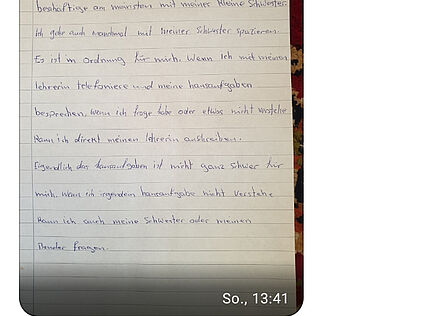 beshäftige am meinsten mit meiner kleine Schwester.
Ich gehe auch manchmal mit meiner Schwester spazieren.
Es ist in Ordnung für mich. Wenn ich mit meinen
lehrerin telefoniere und meine hausaufgaben
besprechen. wenn ich frage habe oder etwas nicht verstehe
kann ich direkt meinen lehrerin anschreiben.
das hausaufgaben ist nicht ganz schwer für
mich. wenn ich irgendein hausaufgabe nicht verstehe
kann ich auch meine Schwester oder meinen
Bruder fragen.
So., 13:41